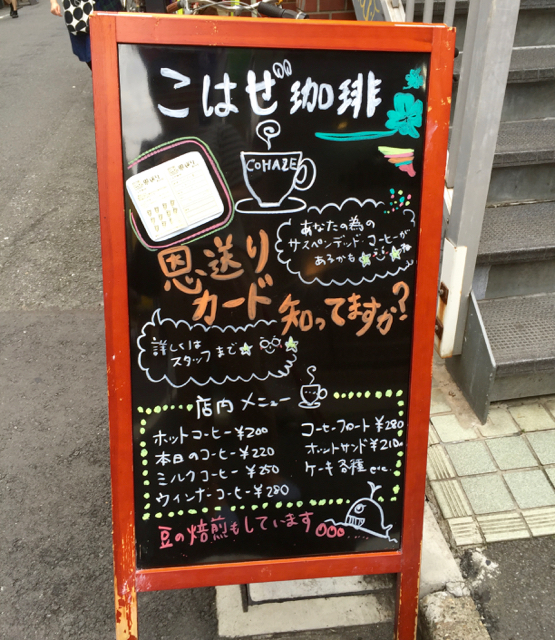 こはぜ珈琲
COHAZE
あなたの為の
サスペンデッド・コーヒーが
あるかも
恩送り
カード
知ってますか?
詳しくは
スタッフまで
店内メニュー
ホットコーヒー ¥200
本日のコーヒー ¥220
ミルクコーヒー ¥250
ウィンナーコーヒー ¥280
コーヒーフロート ¥280
ホットサンド ¥210
ケーキ各種 etc.
豆の焙煎もしています